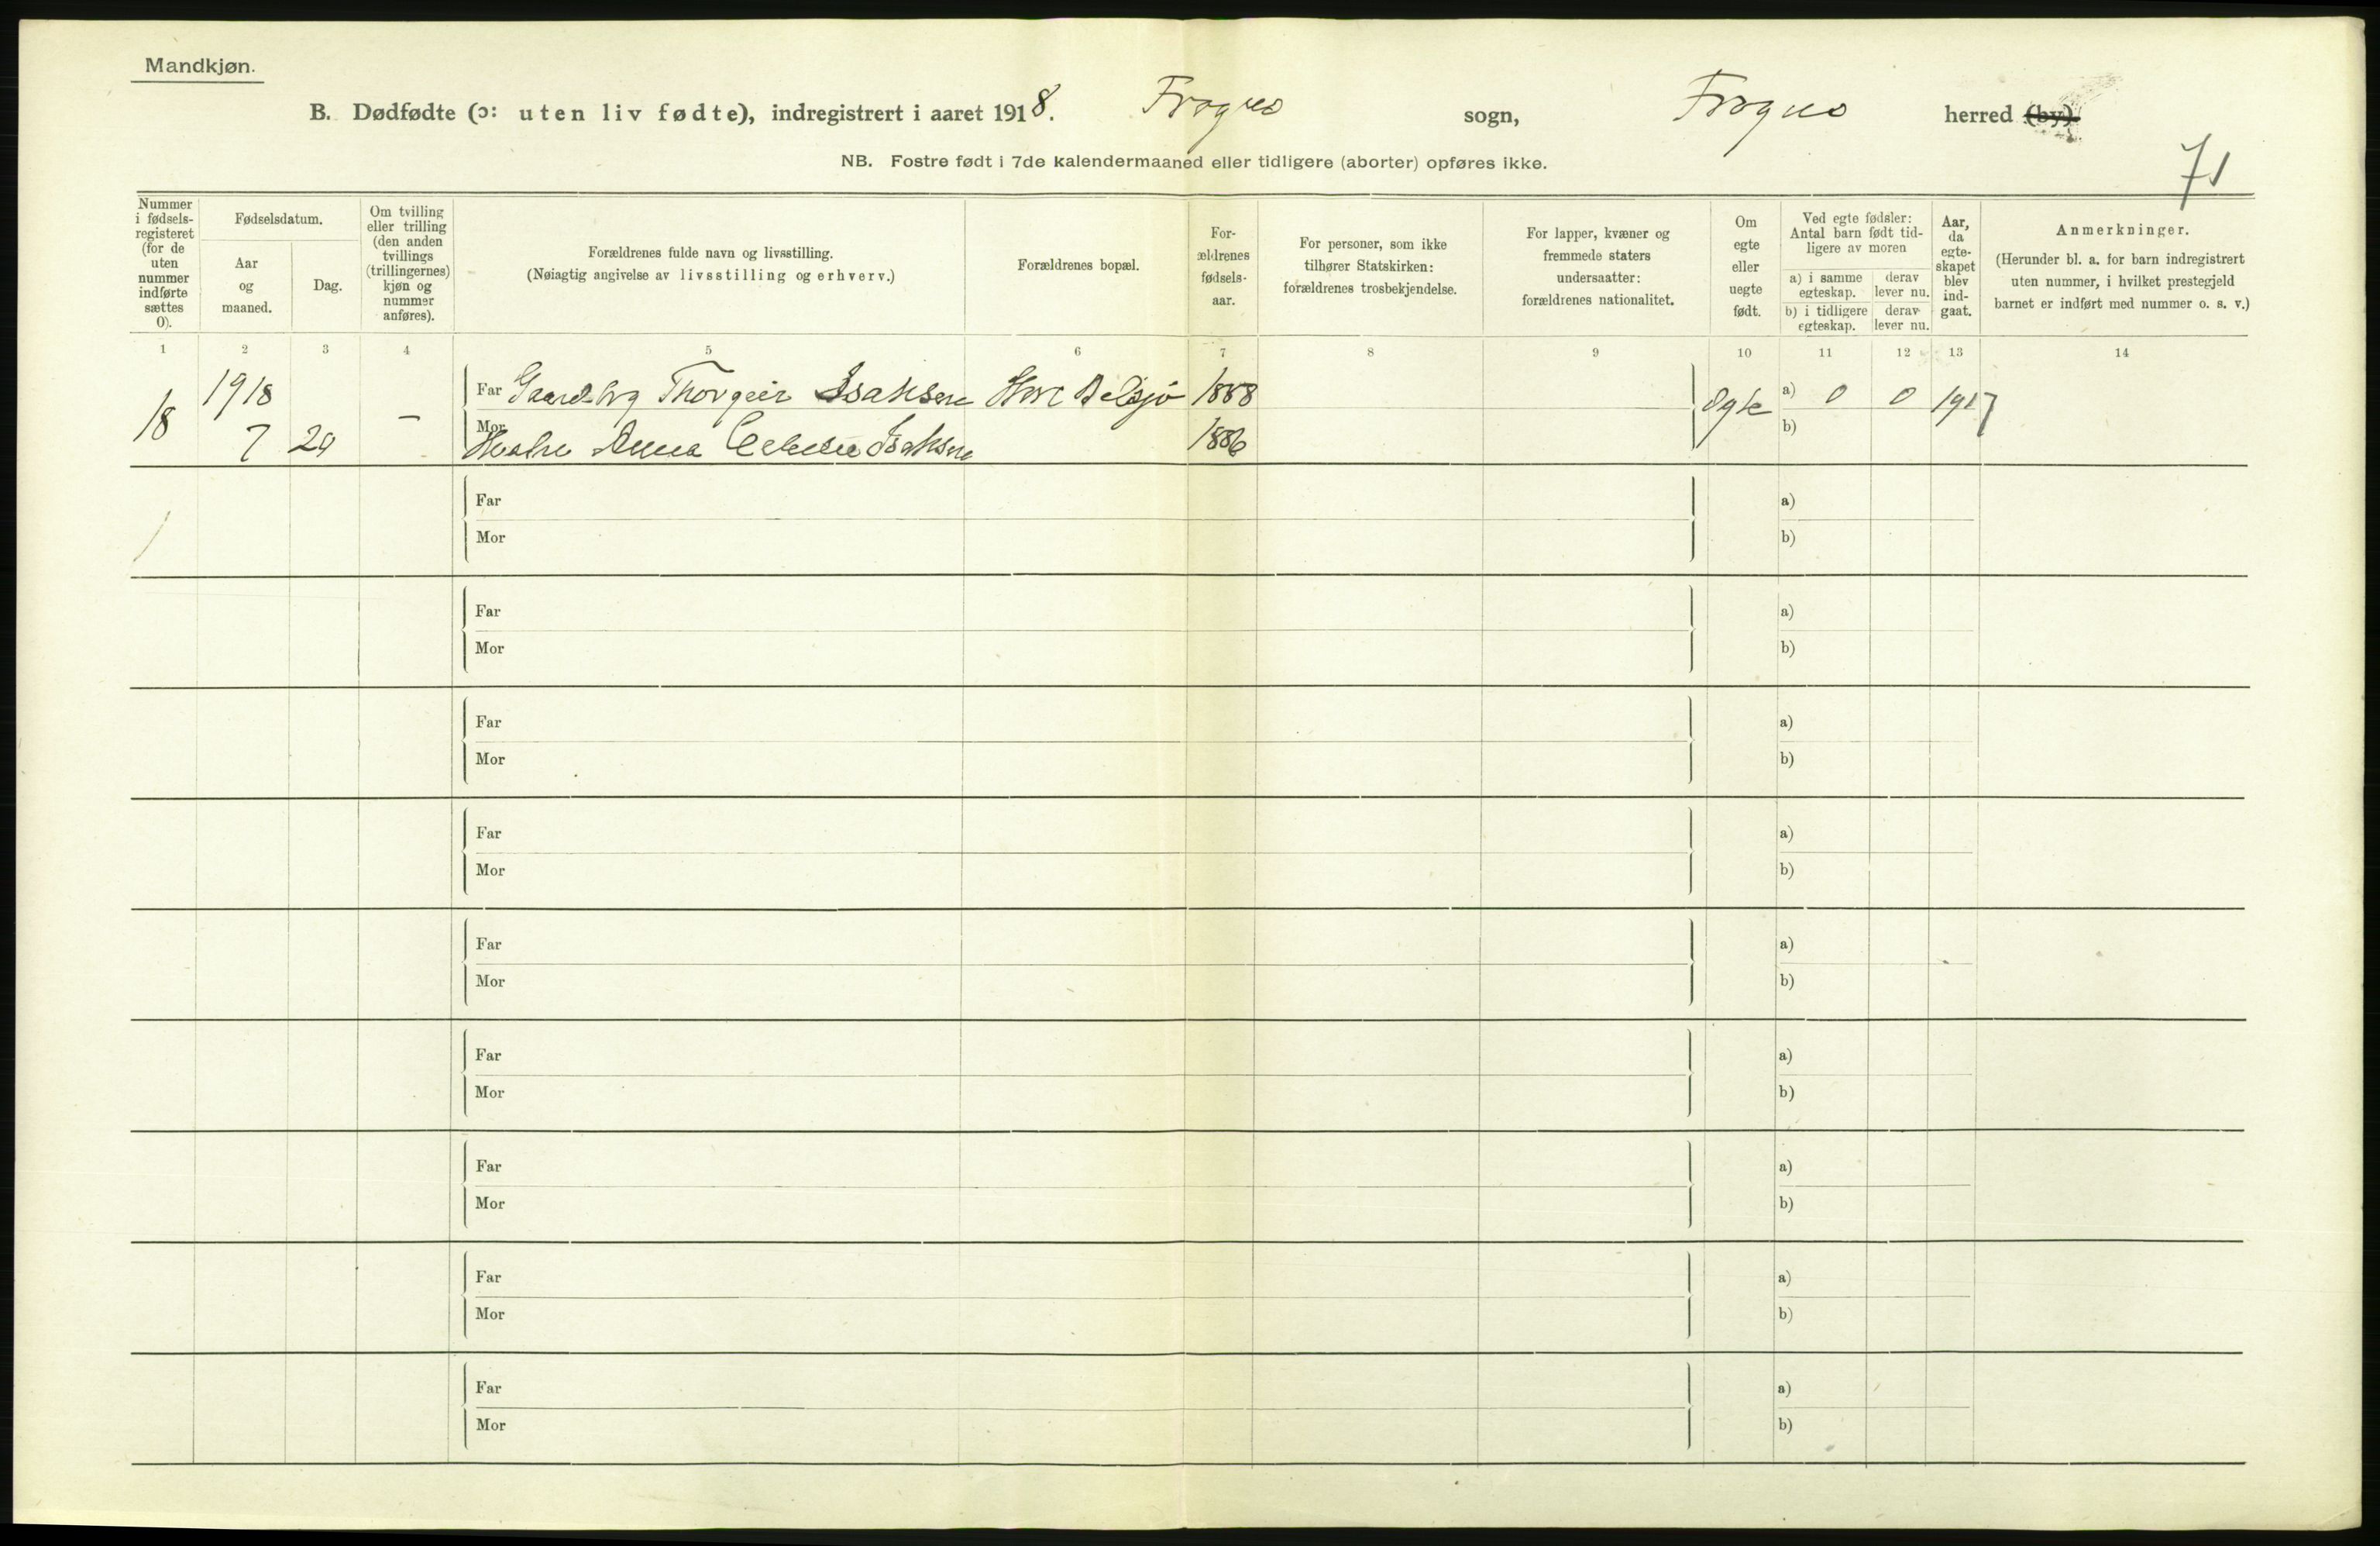 Mandkjøn.
B. Dødfødte (ɔ: uten liv fødte), indregistrert i aaret 1918. Frogn sogn, Frogn herred (by).
71
NB. Fostre født i 7de kalendermaaned eller tidligere (aborter) opføres ikke.
Nummer
i fødsels-
registeret
(for de
uten
nummer
indførte
sættes
0).
Fødselsdatum.
Aar
og
maaned.
Dag.
Om tvilling
eller trilling
(den anden
tvillings
(trillingernes)
kjøn og
nummer
anføres).
Forældrenes fulde navn og livsstilling.
(Nøiagtig angivelse av livsstilling og erhverv.)
Forældrenes bopæl.
For-
ældrenes
fødsels-
aar.
For personer, som ikke
tilhører Statskirken:
forældrenes trosbekjendelse.
For lapper, kvæner og
fremmede staters
undersaatter:
forældrenes nationalitet.
Om
egte
eller
uegte
født.
Ved egte fødsler:
Antal barn født tid-
ligere av moren
a) i samme
egteskap.
derav
lever nu.
b) i tidligere
egteskap.
derav
lever nu.
Aar,
da
egte-
skapet
blev
ind-
gaat.
Anmerkninger.
(Herunder bl. a. for barn indregistrert
uten nummer, i hvilket prestegjeld
barnet er indført med nummer o. s. v.)
1 2 3 4 5 6 7 8 9 10 11 12 13 14
18 1918 7 29 —
Far Thorgeir Isaksen 1888
Mor Hustru Anna Isaksen 1886
Egte a) 0 0 1917
b)
Far a)
Mor b)
Far a)
Mor b)
Far a)
Mor b)
Far a)
Mor b)
Far a)
Mor b)
Far a)
Mor b)
Far a)
Mor b)
Far a)
Mor b)
Far a)
Mor b)